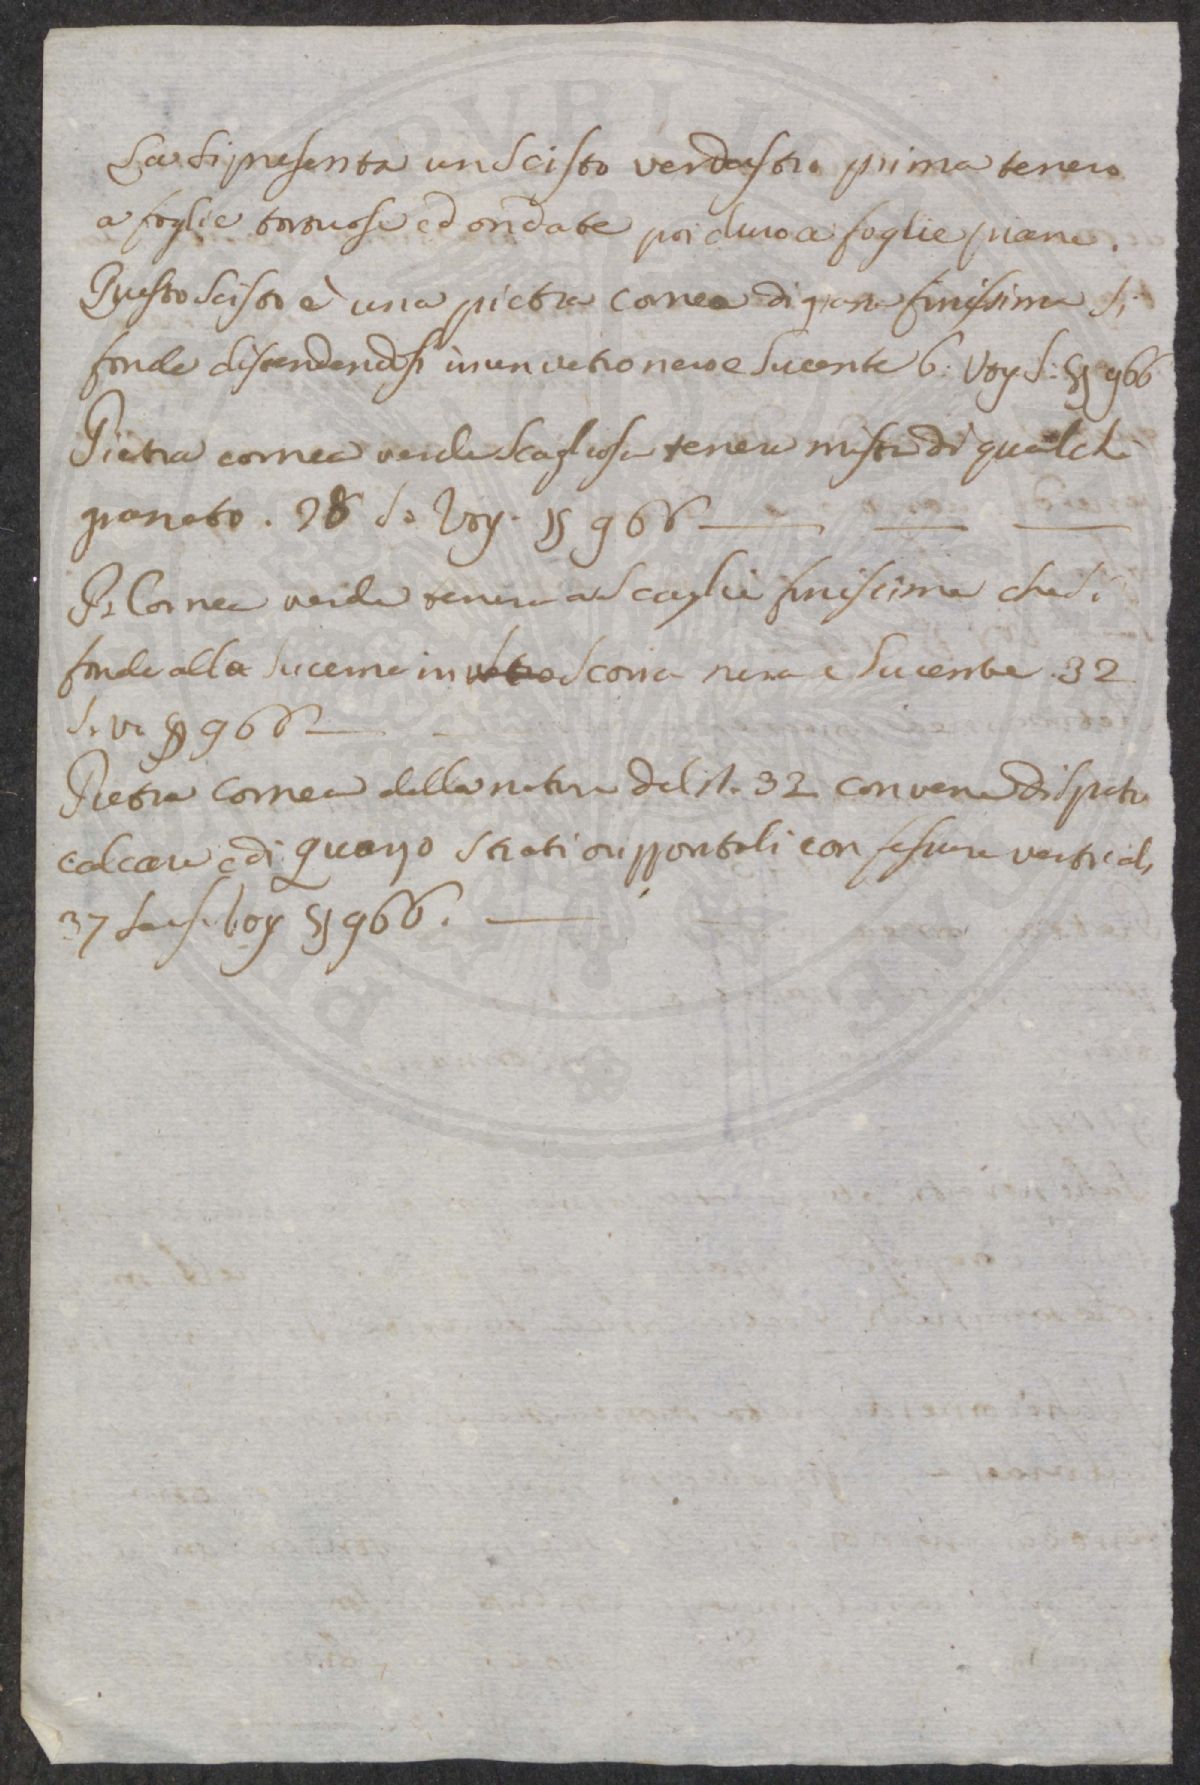 La si presenta un Scisto verdastro prima tenero
a foglie tortuose ed ondate poi duro a foglie piane.
Questo Scisto è una pietra cornea di grana finissima si
fonde distendendosi in un vetro nero e lucente 6. Voy S. §§ 966
Pietra cornea verde Scagliosa tenera mista di qualche
granato. 28 S. Voy. §§ 966
P. Cornea verde tenera a Scaglie finissime che si
fonde alla lucerna in vetro Scoria nera e lucente. 32
S. V. §§ 966
Pietra Cornea della natura del n. 32 con vene di Spato
calcare e di Quarzo Strati orizzontali con fessure verticali
37 Saus. Voy §§ 966.
PUBLICA